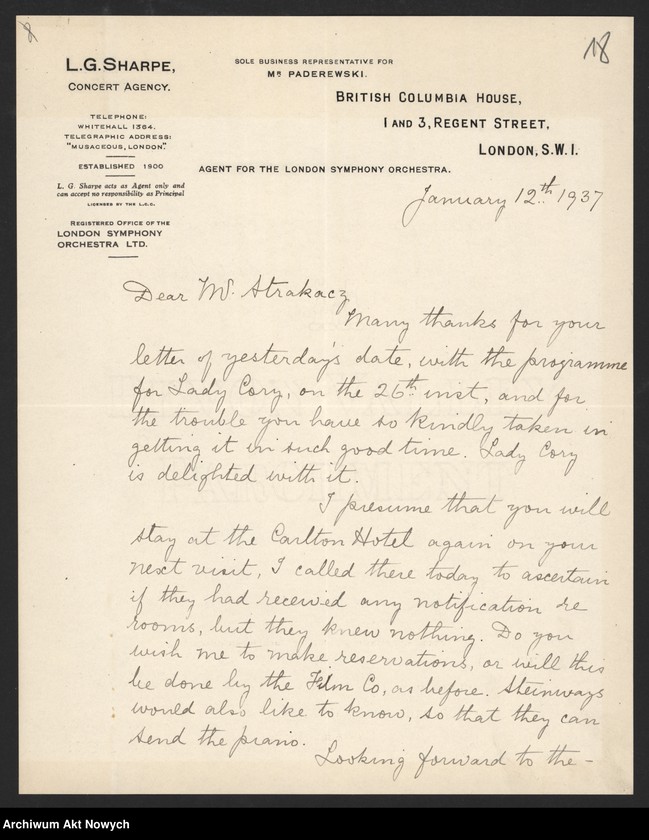 18
L.G. SHARPE,
CONCERT AGENCY.
TELEPHONE:
WHITEHALL 1364.
TELEGRAPHIC ADDRESS:
"MUSACEOUS, LONDON."
ESTABLISHED 1900
L. G. Sharpe acts as Agent only and
can accept no responsibility as Principal
LICENSED BY THE L.C.C.
REGISTERED OFFICE OF THE
LONDON SYMPHONY
ORCHESTRA LTD.
SOLE BUSINESS REPRESENTATIVE FOR
MR PADEREWSKI.
BRITISH COLUMBIA HOUSE,
1 AND 3, REGENT STREET,
LONDON, S.W.1.
AGENT FOR THE LONDON SYMPHONY ORCHESTRA.
January 12th 1937
Dear Mr. Strakacz,
Many thanks for your
letter of yesterday's date, with the programme
for Lady Cory, on the 26th inst, and for
the trouble you have so kindly taken in
getting it in such good time. Lady Cory
is delighted with it.
I presume that you will
stay at the Carlton Hotel again on your
next visit, I called there today to ascertain
if they had received any notification re
rooms, but they knew nothing. Do you
wish me to make reservations, or will this
be done by the Film Co, as before. Steinways
would also like to know, so that they can
send the piano.
Looking forward to the -
Archiwum Akt Nowych